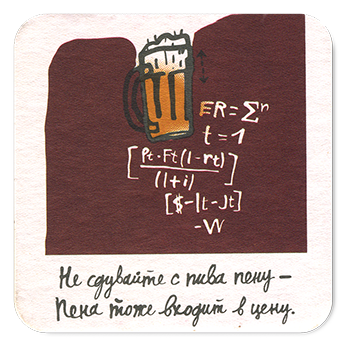 ER = Σⁿ
t = 1
[Pt · Ft (1 - rt) / (1 + i)]
[$ - It - Jt]
- W
Не сдувайте с пива пену –
Пена тоже входит в цену.